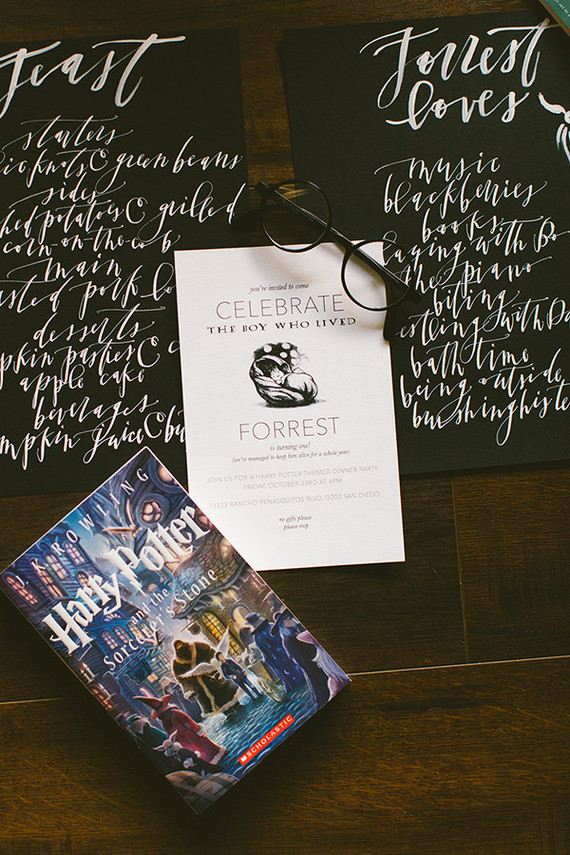 Feast
starters
knots & green beans
sides
potatoes & grilled
corn-on-the-cob
main
pork
desserts
pasties &
apple cake
beverages
juice &
Forrest
loves
music
blackberries
books
with
the piano
biting
with
bath time
being outside
brushing his
you're invited to come
CELEBRATE
THE BOY WHO LIVED
FORREST
is turning one!
(we've managed to keep him alive for a whole year)
JOIN US FOR A HARRY POTTER THEMED DINNER PARTY
FRIDAY, OCTOBER 23RD AT 6PM
13323 RANCHO PENASQUITOS BLVD. D202 SAN DIEGO
no gifts please
please rsvp
J.K. ROWLING
Harry Potter
and the
Sorcerer's Stone
SCHOLASTIC